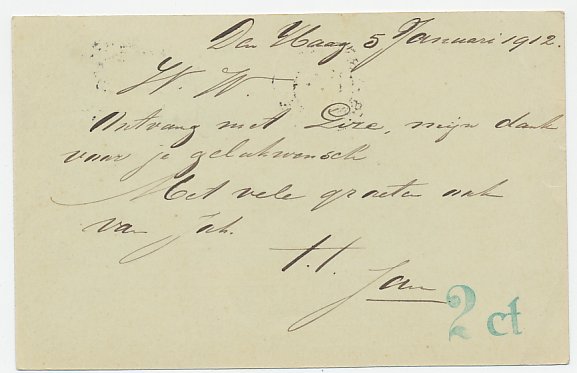 Den Haag 5 Januari 1912.
W. W.
Ontvang met Lize, mijn dank
voor je gelukwensch
Met vele groeten ook
van Joh.
t. t.
Jan
2 ct